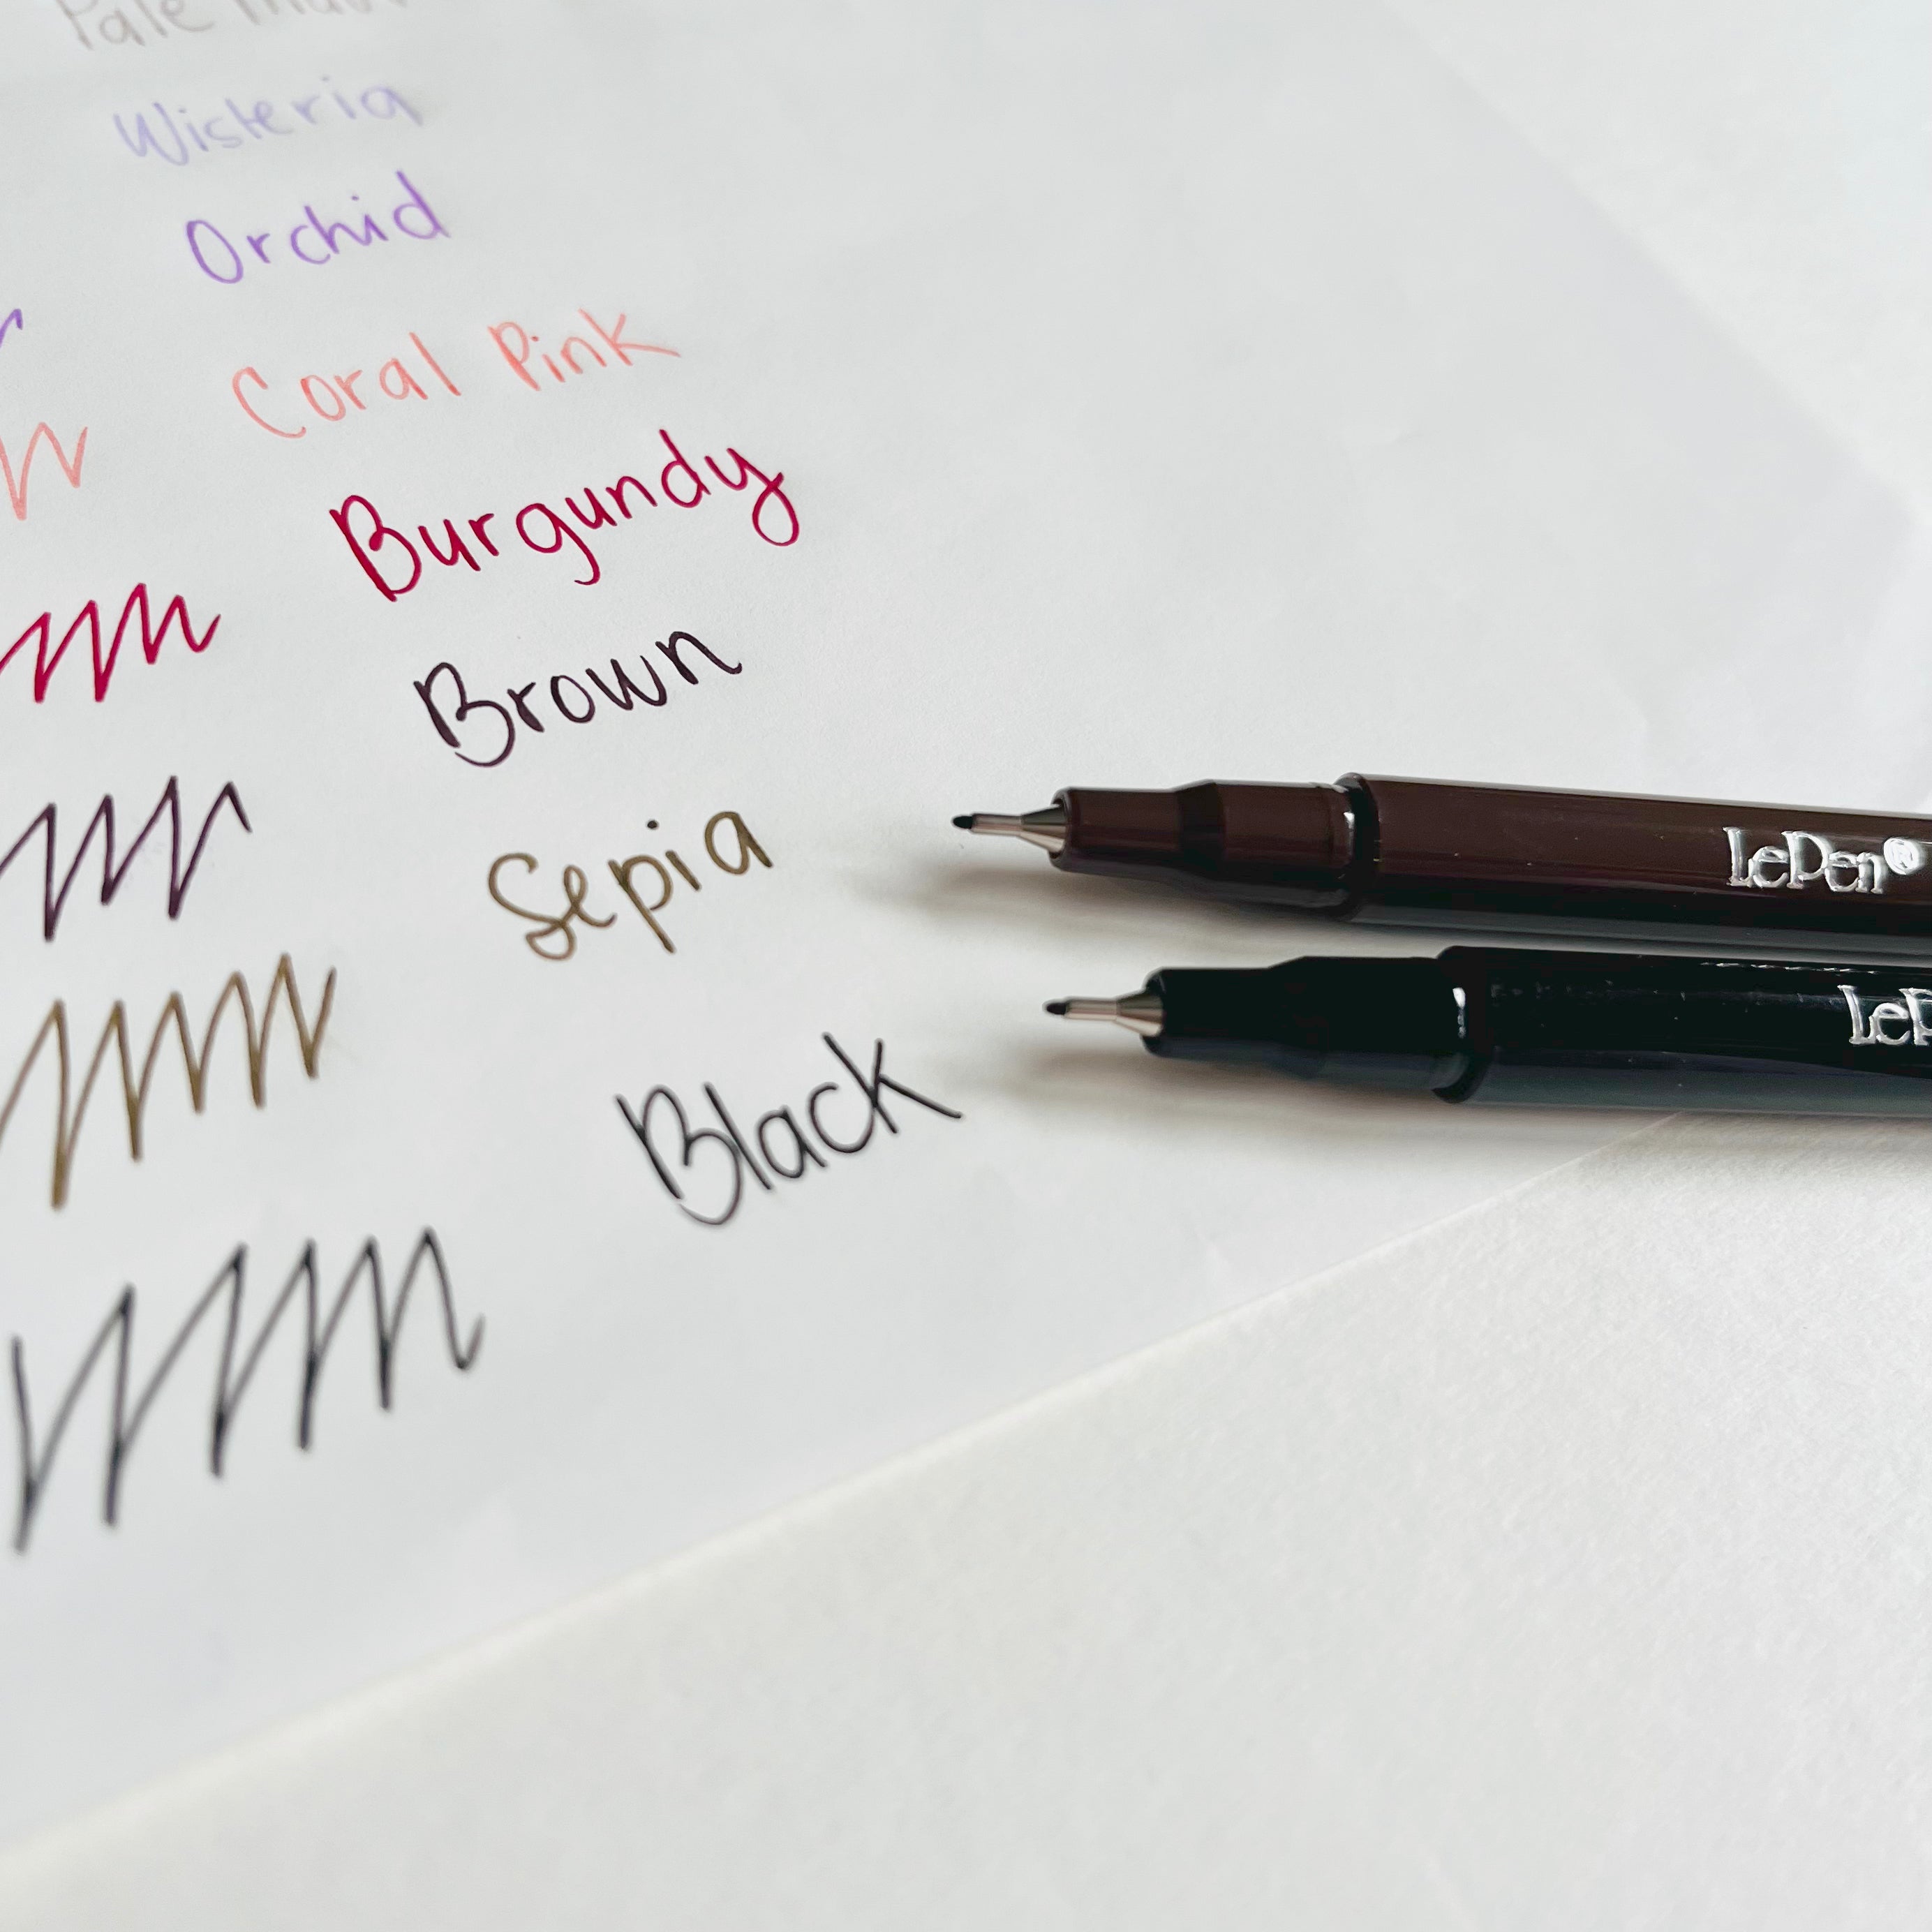 Pale
Wisteria
Orchid
Coral Pink
Burgundy
Brown
Sepia
Black
LePen®
LeP